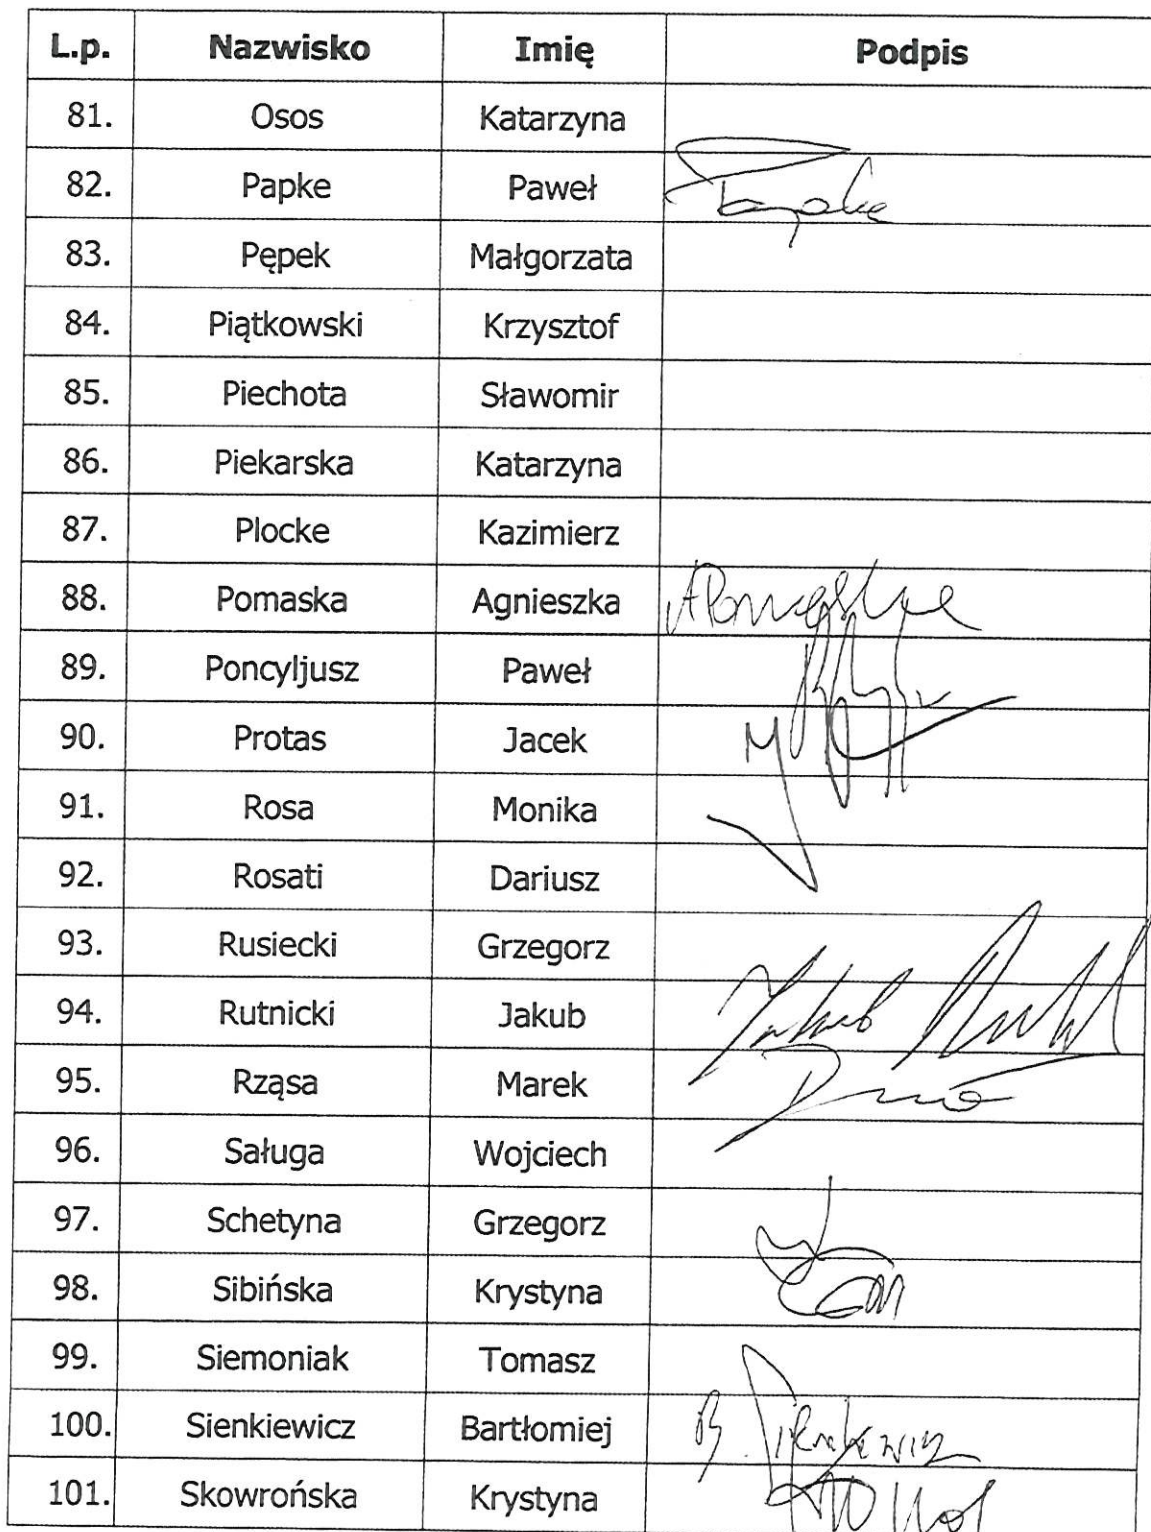 L.p. Nazwisko Imię Podpis
81. Osos Katarzyna
82. Papke Paweł Papke
83. Pępek Małgorzata
84. Piątkowski Krzysztof
85. Piechota Sławomir
86. Piekarska Katarzyna
87. Plocke Kazimierz
88. Pomaska Agnieszka APomaska
89. Poncyljusz Paweł
90. Protas Jacek
91. Rosa Monika
92. Rosati Dariusz
93. Rusiecki Grzegorz
94. Rutnicki Jakub Jakub
95. Rząsa Marek
96. Saługa Wojciech
97. Schetyna Grzegorz
98. Sibińska Krystyna
99. Siemoniak Tomasz
100. Sienkiewicz Bartłomiej B. Sienkiewicz
101. Skowrońska Krystyna